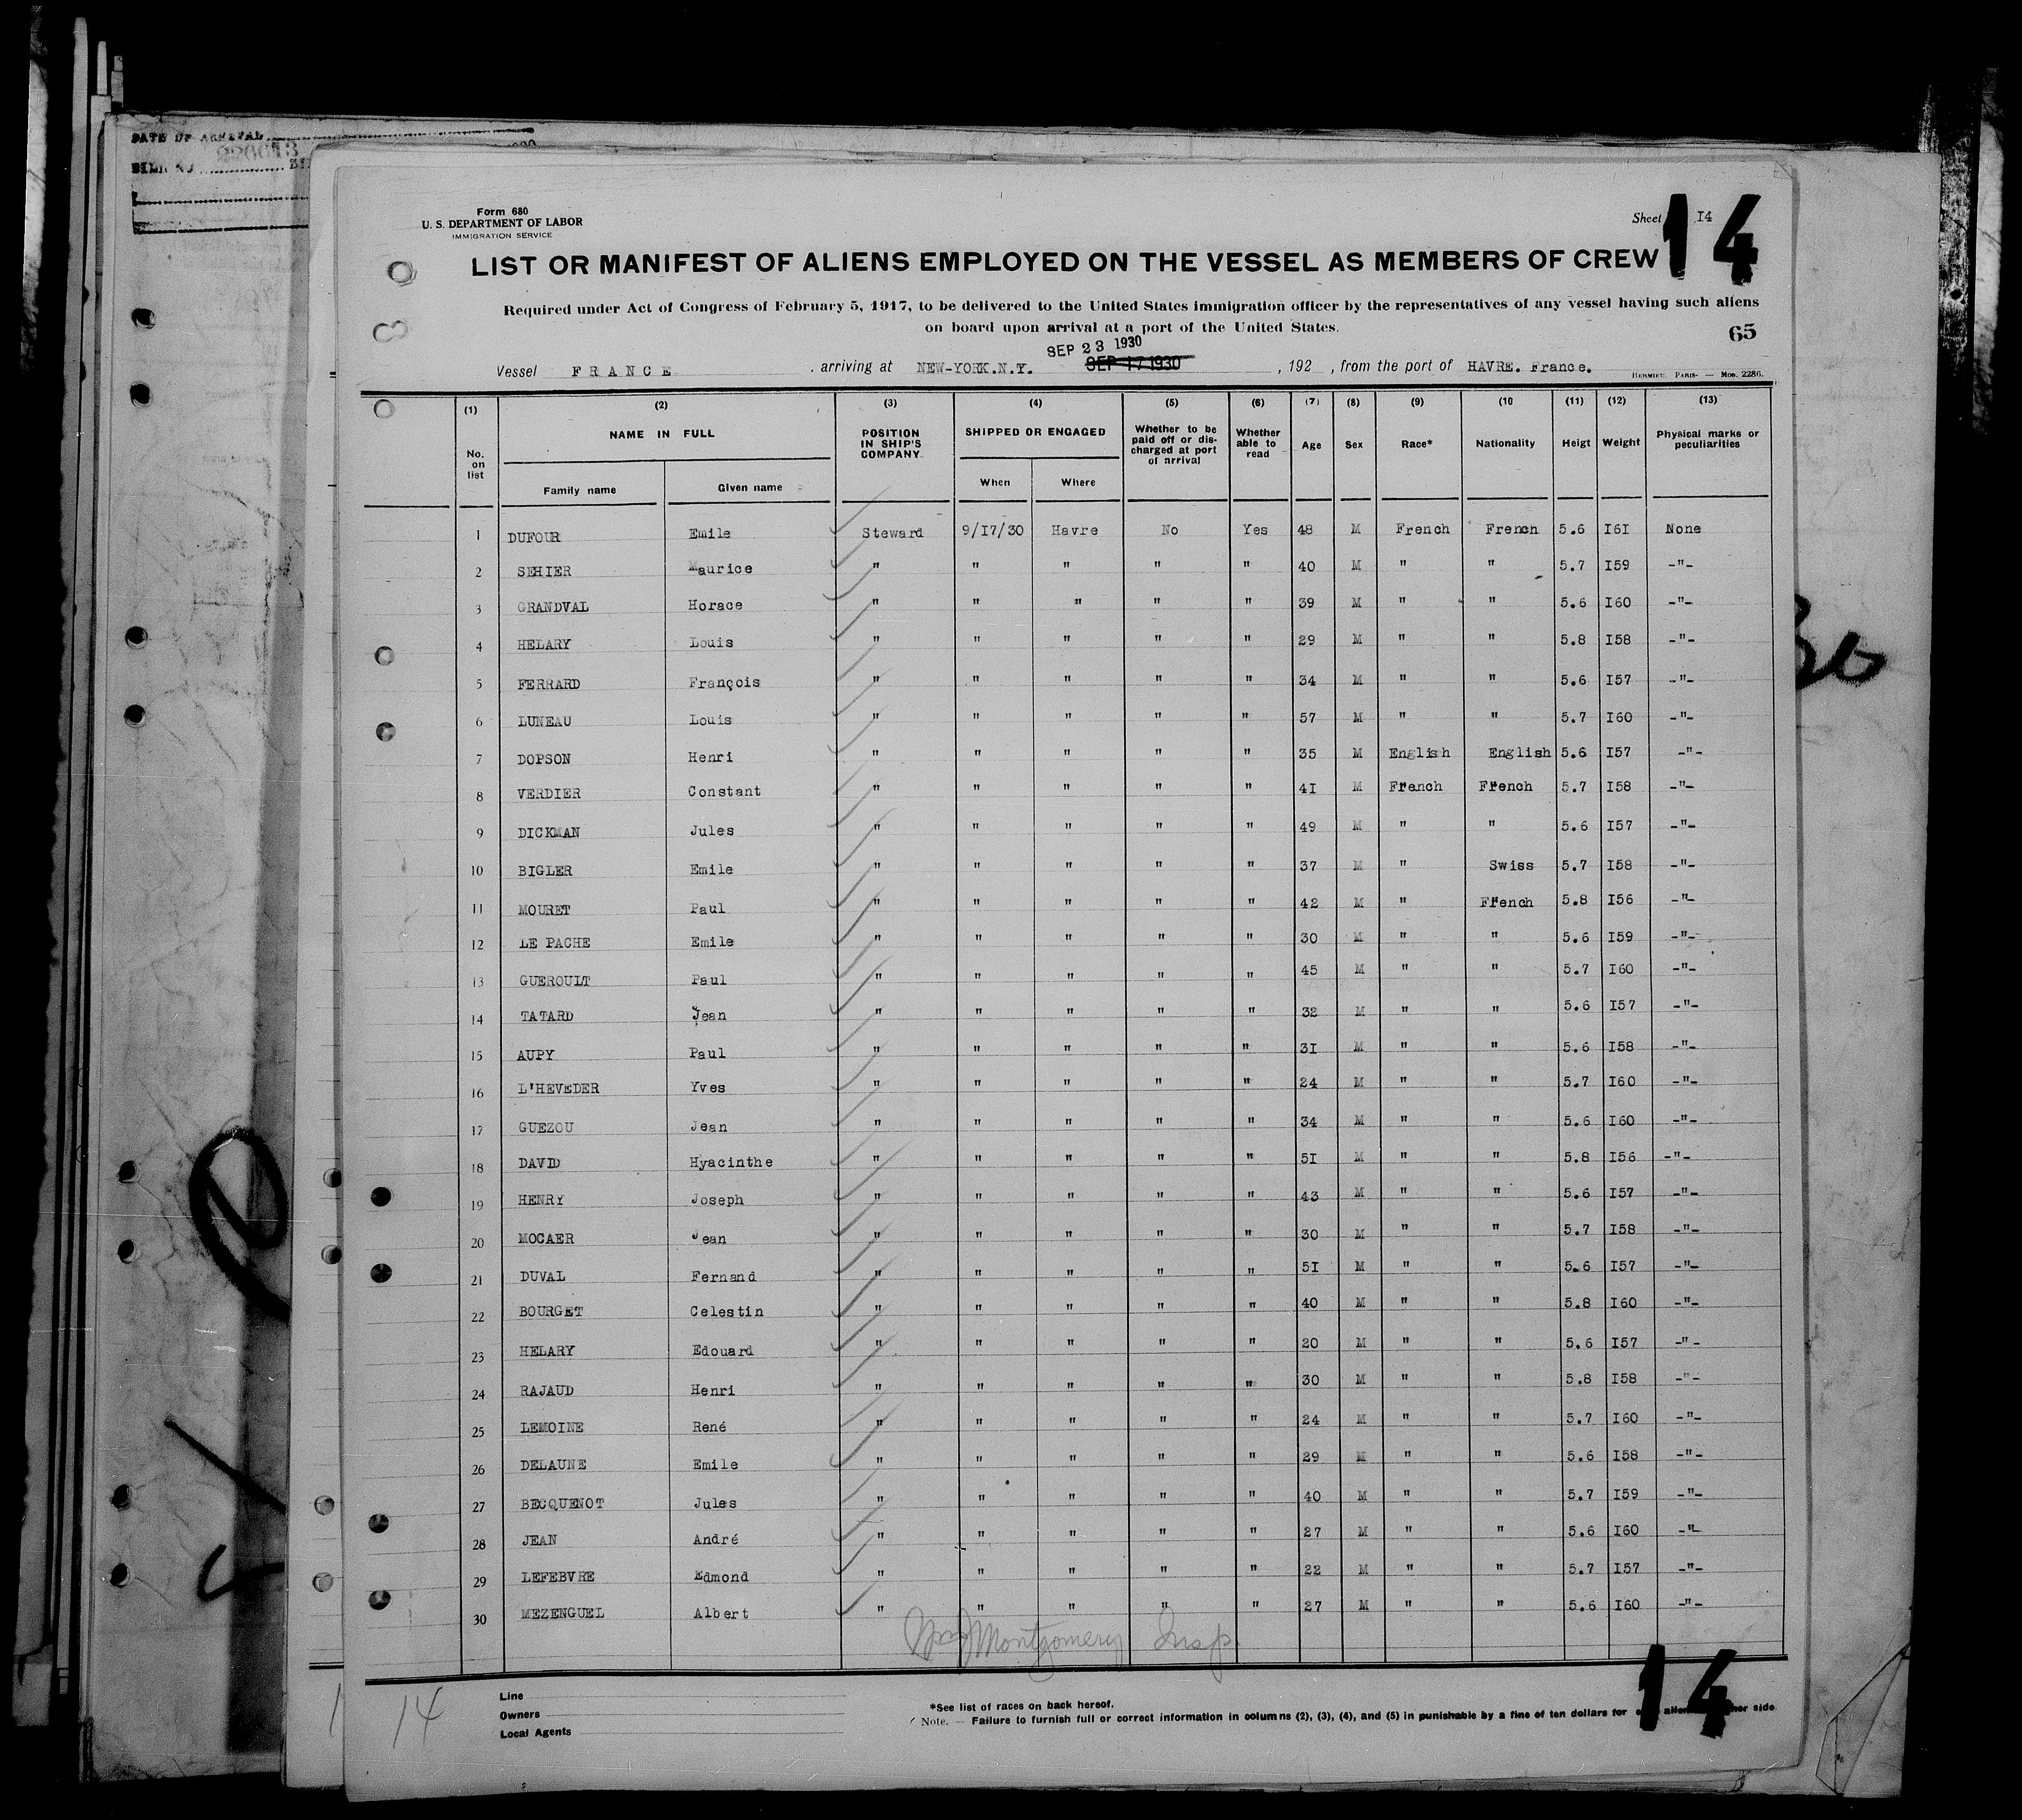 DATE OF ARRIVAL
Form 680
U. S. DEPARTMENT OF LABOR
IMMIGRATION SERVICE
Sheet I4
14
LIST OR MANIFEST OF ALIENS EMPLOYED ON THE VESSEL AS MEMBERS OF CREW
Required under Act of Congress of February 5, 1917, to be delivered to the United States immigration officer by the representatives of any vessel having such aliens
on board upon arrival at a port of the United States.
65
SEP 23 1930
Vessel FRANCE , arriving at NEW-YORK.N.Y. SEP 17 1930 , 192 , from the port of HAVRE. France.
HERMIEU, PARIS- — Mod. 2286.
(1) (2) (3) (4) (5) (6) (7) (8) (9) (10 (11) (12) (13)
No. on list NAME IN FULL POSITION IN SHIP'S COMPANY SHIPPED OR ENGAGED Whether to be paid off or discharged at port of arrival Whether able to read Age Sex Race* Nationality Heigt Weight Physical marks or peculiarities
Family name Given name When Where
1 DUFOUR Emile Steward 9/17/30 Havre No Yes 48 M French French 5.6 I6I None
2 SEHIER Maurice " " " " " 40 M " " 5.7 I59 -"-
3 GRANDVAL Horace " " " " " 39 M " " 5.6 I60 -"-
4 HELARY Louis " " " " " 29 M " " 5.8 I58 -"-
5 FERRARD François " " " " " 34 M " " 5.6 I57 -"-
6 LUNEAU Louis " " " " " 57 M " " 5.7 I60 -"-
7 DOPSON Henri " " " " " 35 M English English 5.6 I57 -"-
8 VERDIER Constant " " " " " 4I M French French 5.7 I58 -"-
9 DICKMAN Jules " " " " " 49 M " " 5.6 I57 -"-
10 BIGLER Emile " " " " " 37 M " Swiss 5.7 I58 -"-
11 MOURET Paul " " " " " 42 M " French 5.8 I56 -"-
12 LE PACHE Emile " " " " " 30 M " " 5.6 I59 -"-
13 GUEROULT Paul " " " " " 45 M " " 5.7 I60 -"-
14 TATARD Jean " " " " " 32 M " " 5.6 I57 -"-
15 AUPY Paul " " " " " 3I M " " 5.6 I58 -"-
16 L'HEVEDER Yves " " " " " 24 M " " 5.7 I60 -"-
17 GUEZOU Jean " " " " " 34 M " " 5.6 I60 -"-
18 DAVID Hyacinthe " " " " " 5I M " " 5.8 I56 -"-
19 HENRY Joseph " " " " " 43 M " " 5.6 I57 -"-
20 MOCAER Jean " " " " " 30 M " " 5.7 I58 -"-
21 DUVAL Fernand " " " " " 5I M " " 5.6 I57 -"-
22 BOURGET Celestin " " " " " 40 M " " 5.8 I60 -"-
23 HELARY Edouard " " " " " 20 M " " 5.6 I57 -"-
24 RAJAUD Henri " " " " " 30 M " " 5.8 I58 -"-
25 LEMOINE René " " " " " 24 M " " 5.7 I60 -"-
26 DELAUNE Emile " " " " " 29 M " " 5.6 I58 -"-
27 BECQUENOT Jules " " " " " 40 M " " 5.7 I59 -"-
28 JEAN André " " " " " 27 M " " 5.6 I60 -"-
29 LEFEBVRE Edmond " " " " " 22 M " " 5.7 I57 -"-
30 MEZENGUEL Albert " " " " " 27 M " " 5.6 I60 -"-
Montgomery Insp.
14
Line
Owners
Local Agents
*See list of races on back hereof.
Note. — Failure to furnish full or correct information in columns (2), (3), (4), and (5) in punishable by a fine of ten dollars for side
14